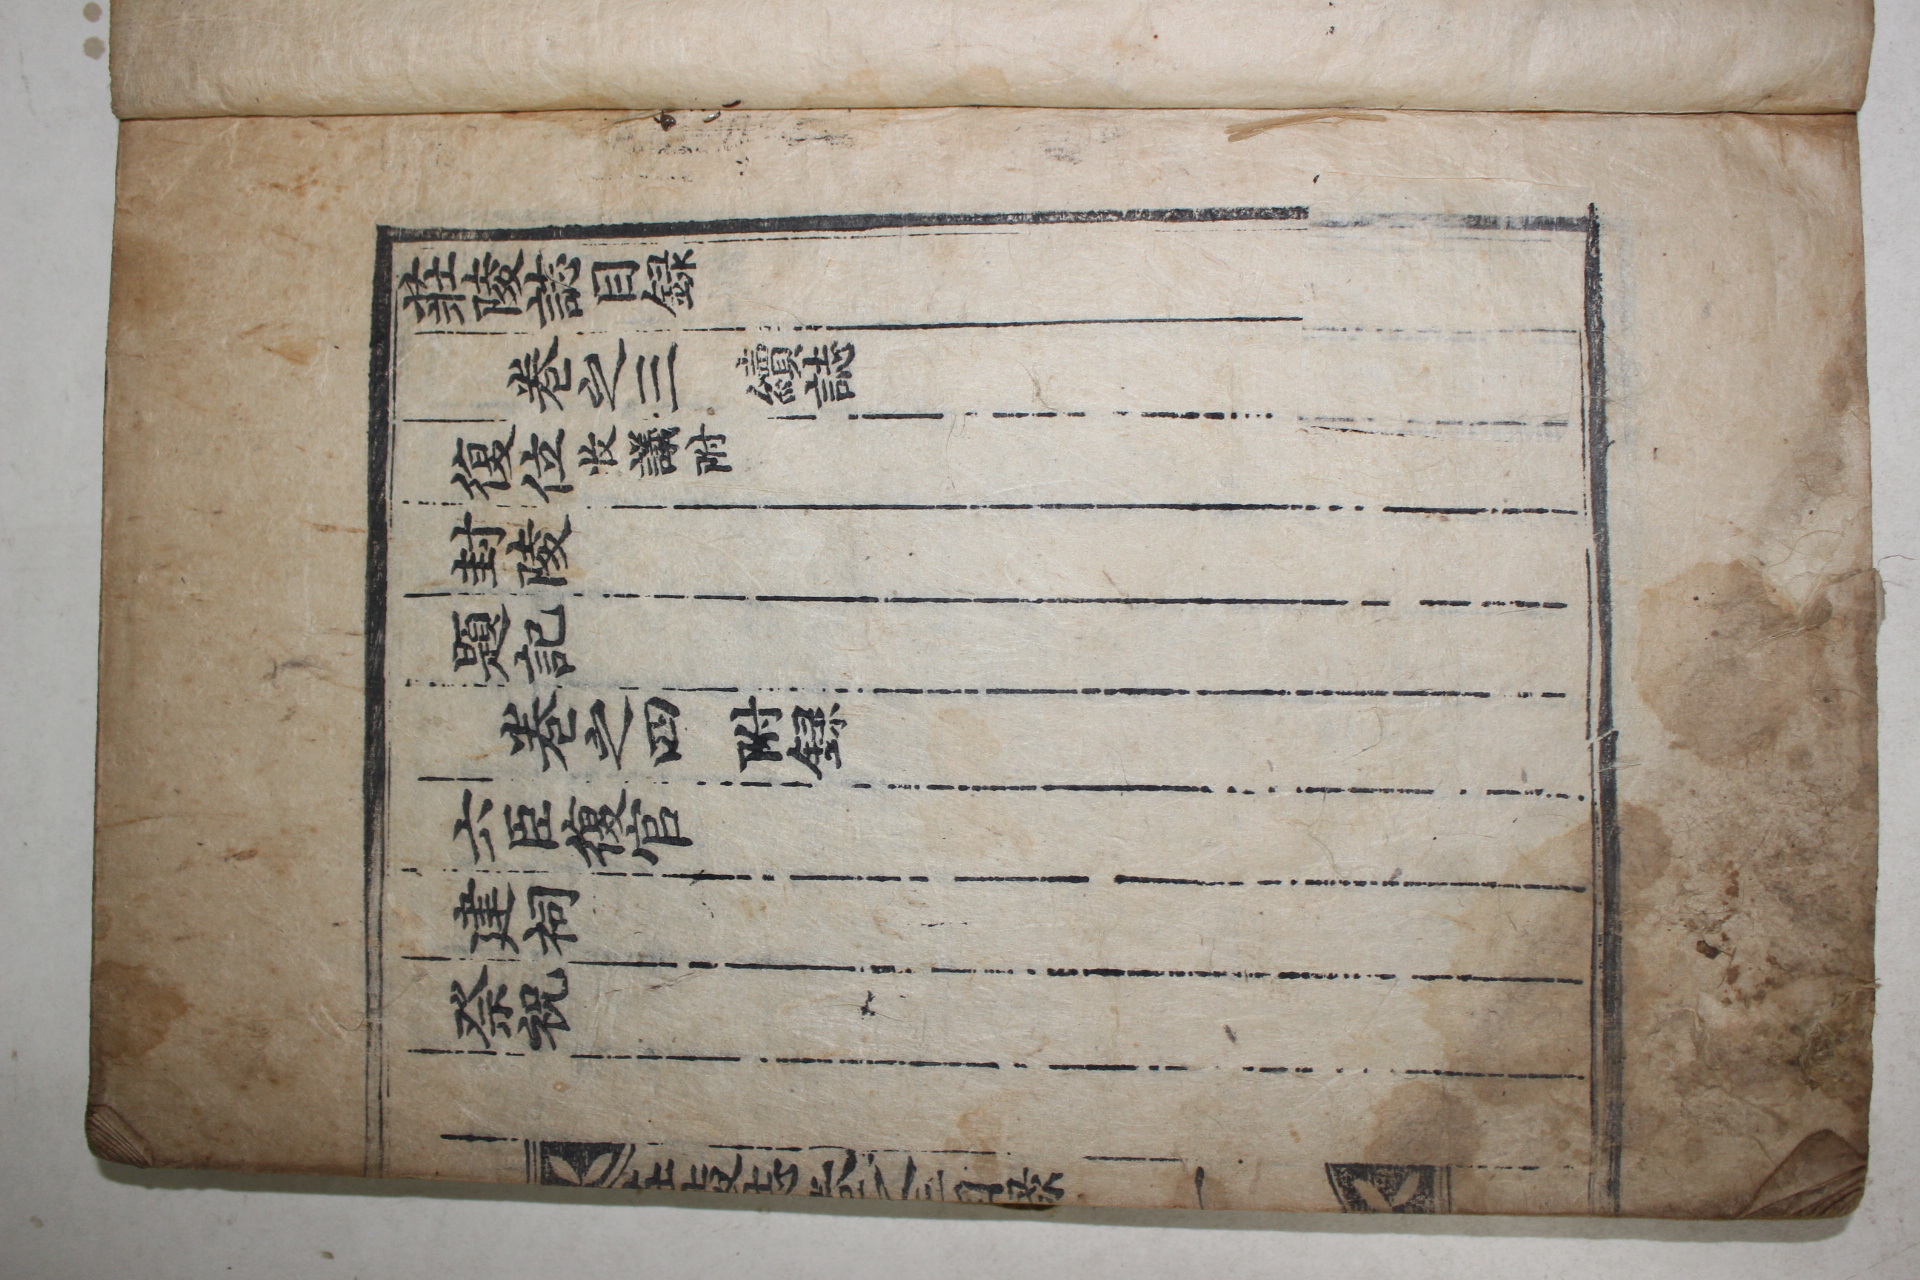 莊陵誌目錄
卷之三 續誌
復位收議附
封陵
題記
卷之四 附錄
六臣復官
建祠
祭祝
莊陵誌卷之三目錄 一